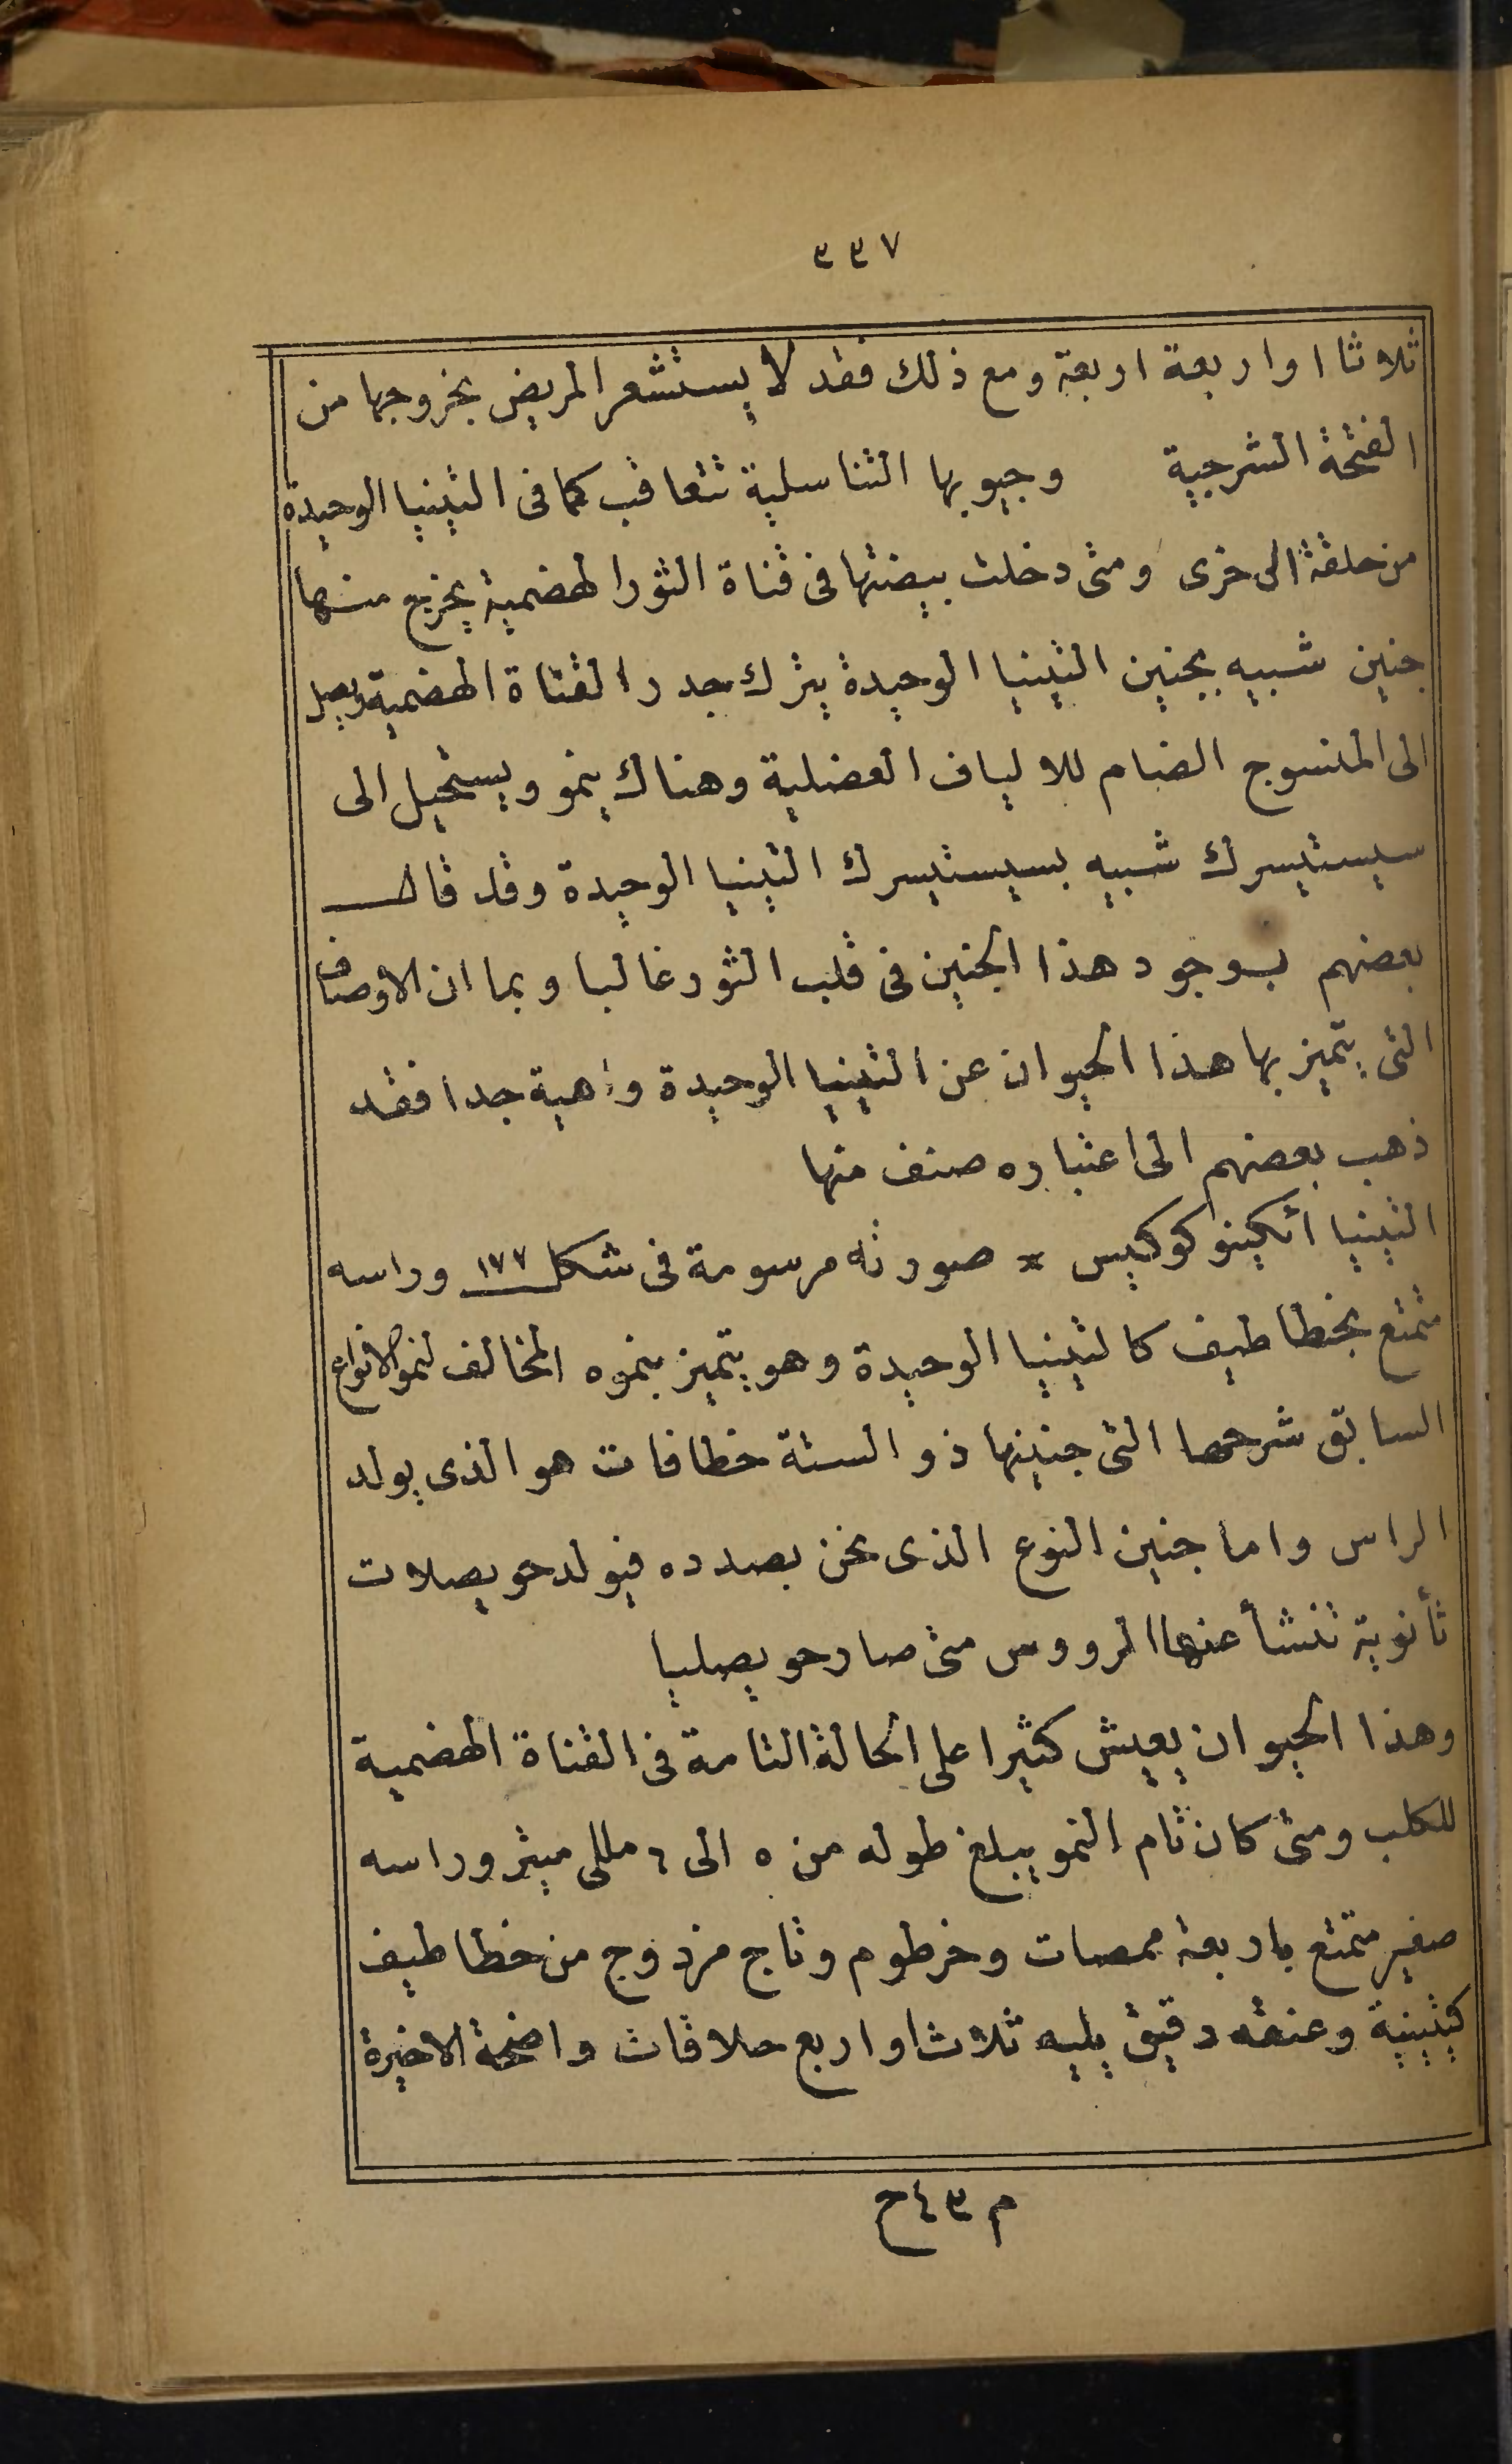 ٣٣٧
ثلاثا او اربعة اربعة ومع ذلك فقد لا يستشعر المريض بخروجها من
الفتحة الشرجية وجيوبها التناسلية تتعاقب كما فى التينيا الوحيدة
من حلقة الى خرى ومتى دخلت بيضتها فى قناة الثور الهضمية يخرج منها
جنين شبيه بجنين التينيا الوحيدة يترك جدر القناة الهضمية ويصل
الى المنسوج الضام للالياف العضلية وهناك ينمو ويستحيل الى
سيستيسرك شبيه بسيستيسرك التينيا الوحيدة وقد قال
بعضهم بوجود هذا الجنين فى قلب الثور غالبا وبما ان الاوصاف
التى يتميز بها هذا الحيوان عن التينيا الوحيدة واهية جدا فقد
ذهب بعضهم الى اعتباره صنف منها
التينيا أكينوكوكيس * صورته مرسومة فى شكل ١٧٧ وراسه
متمتع بخطاطيف كالتينيا الوحيدة وهو يتميز بنموه المخالف لنمو الانواع
السابق شرحها التى جنينها ذو الستة خطافات هو الذى يولد
الراس واما جنين النوع الذى نحن بصدده فيولد حويصلات
ثأنوية تنشأ عنها الرووس متى صار حويصليا
وهذا الحيوان يعيش كثيرا على الحالة التامة فى القناة الهضمية
للكلب ومتى كان تام النمو يبلغ طوله من ٥ الى ٦ مللى ميتر وراسه
صغير متمتع باربعة ممصات وخرطوم وتاج مزدوج من خطاطيف
كيتينية وعنقه دقيق يليه ثلاث او اربع حلاقات واضحة الاخيرة
م ٤٣ ح